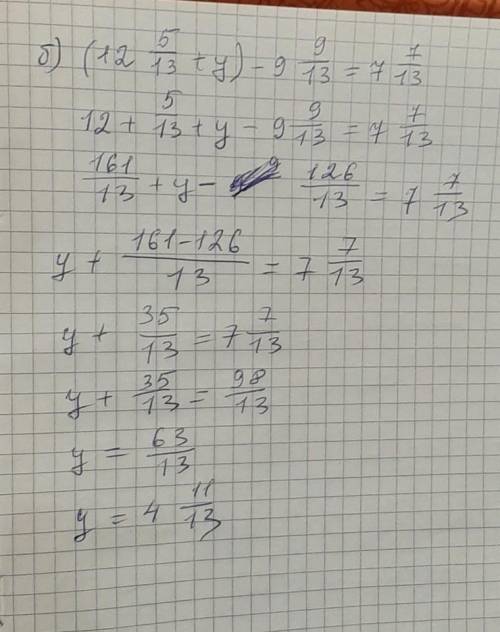 б) (12 5/13 + y) - 9 9/13 = 7 7/13
12 + 5/13 + y - 9 9/13 = 7 7/13
161/13 + y - 126/13 = 7 7/13
y + (161-126)/13 = 7 7/13
y + 35/13 = 7 7/13
y + 35/13 = 98/13
y = 63/13
y = 4 11/13